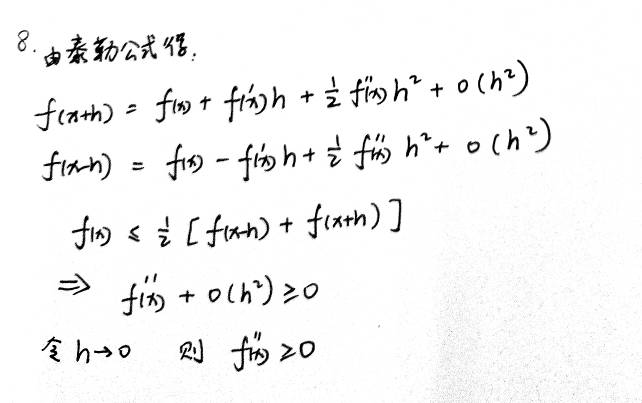 8. 由泰勒公式得:
f(x+h) = f(x) + f'(x)h + ½ f''(x)h² + o(h²)
f(x-h) = f(x) - f'(x)h + ½ f''(x)h² + o(h²)
f(x) ≤ ½ [f(x-h) + f(x+h)]
⇒ f''(x) + o(h²) ≥ 0
令 h→0 则 f''(x) ≥ 0